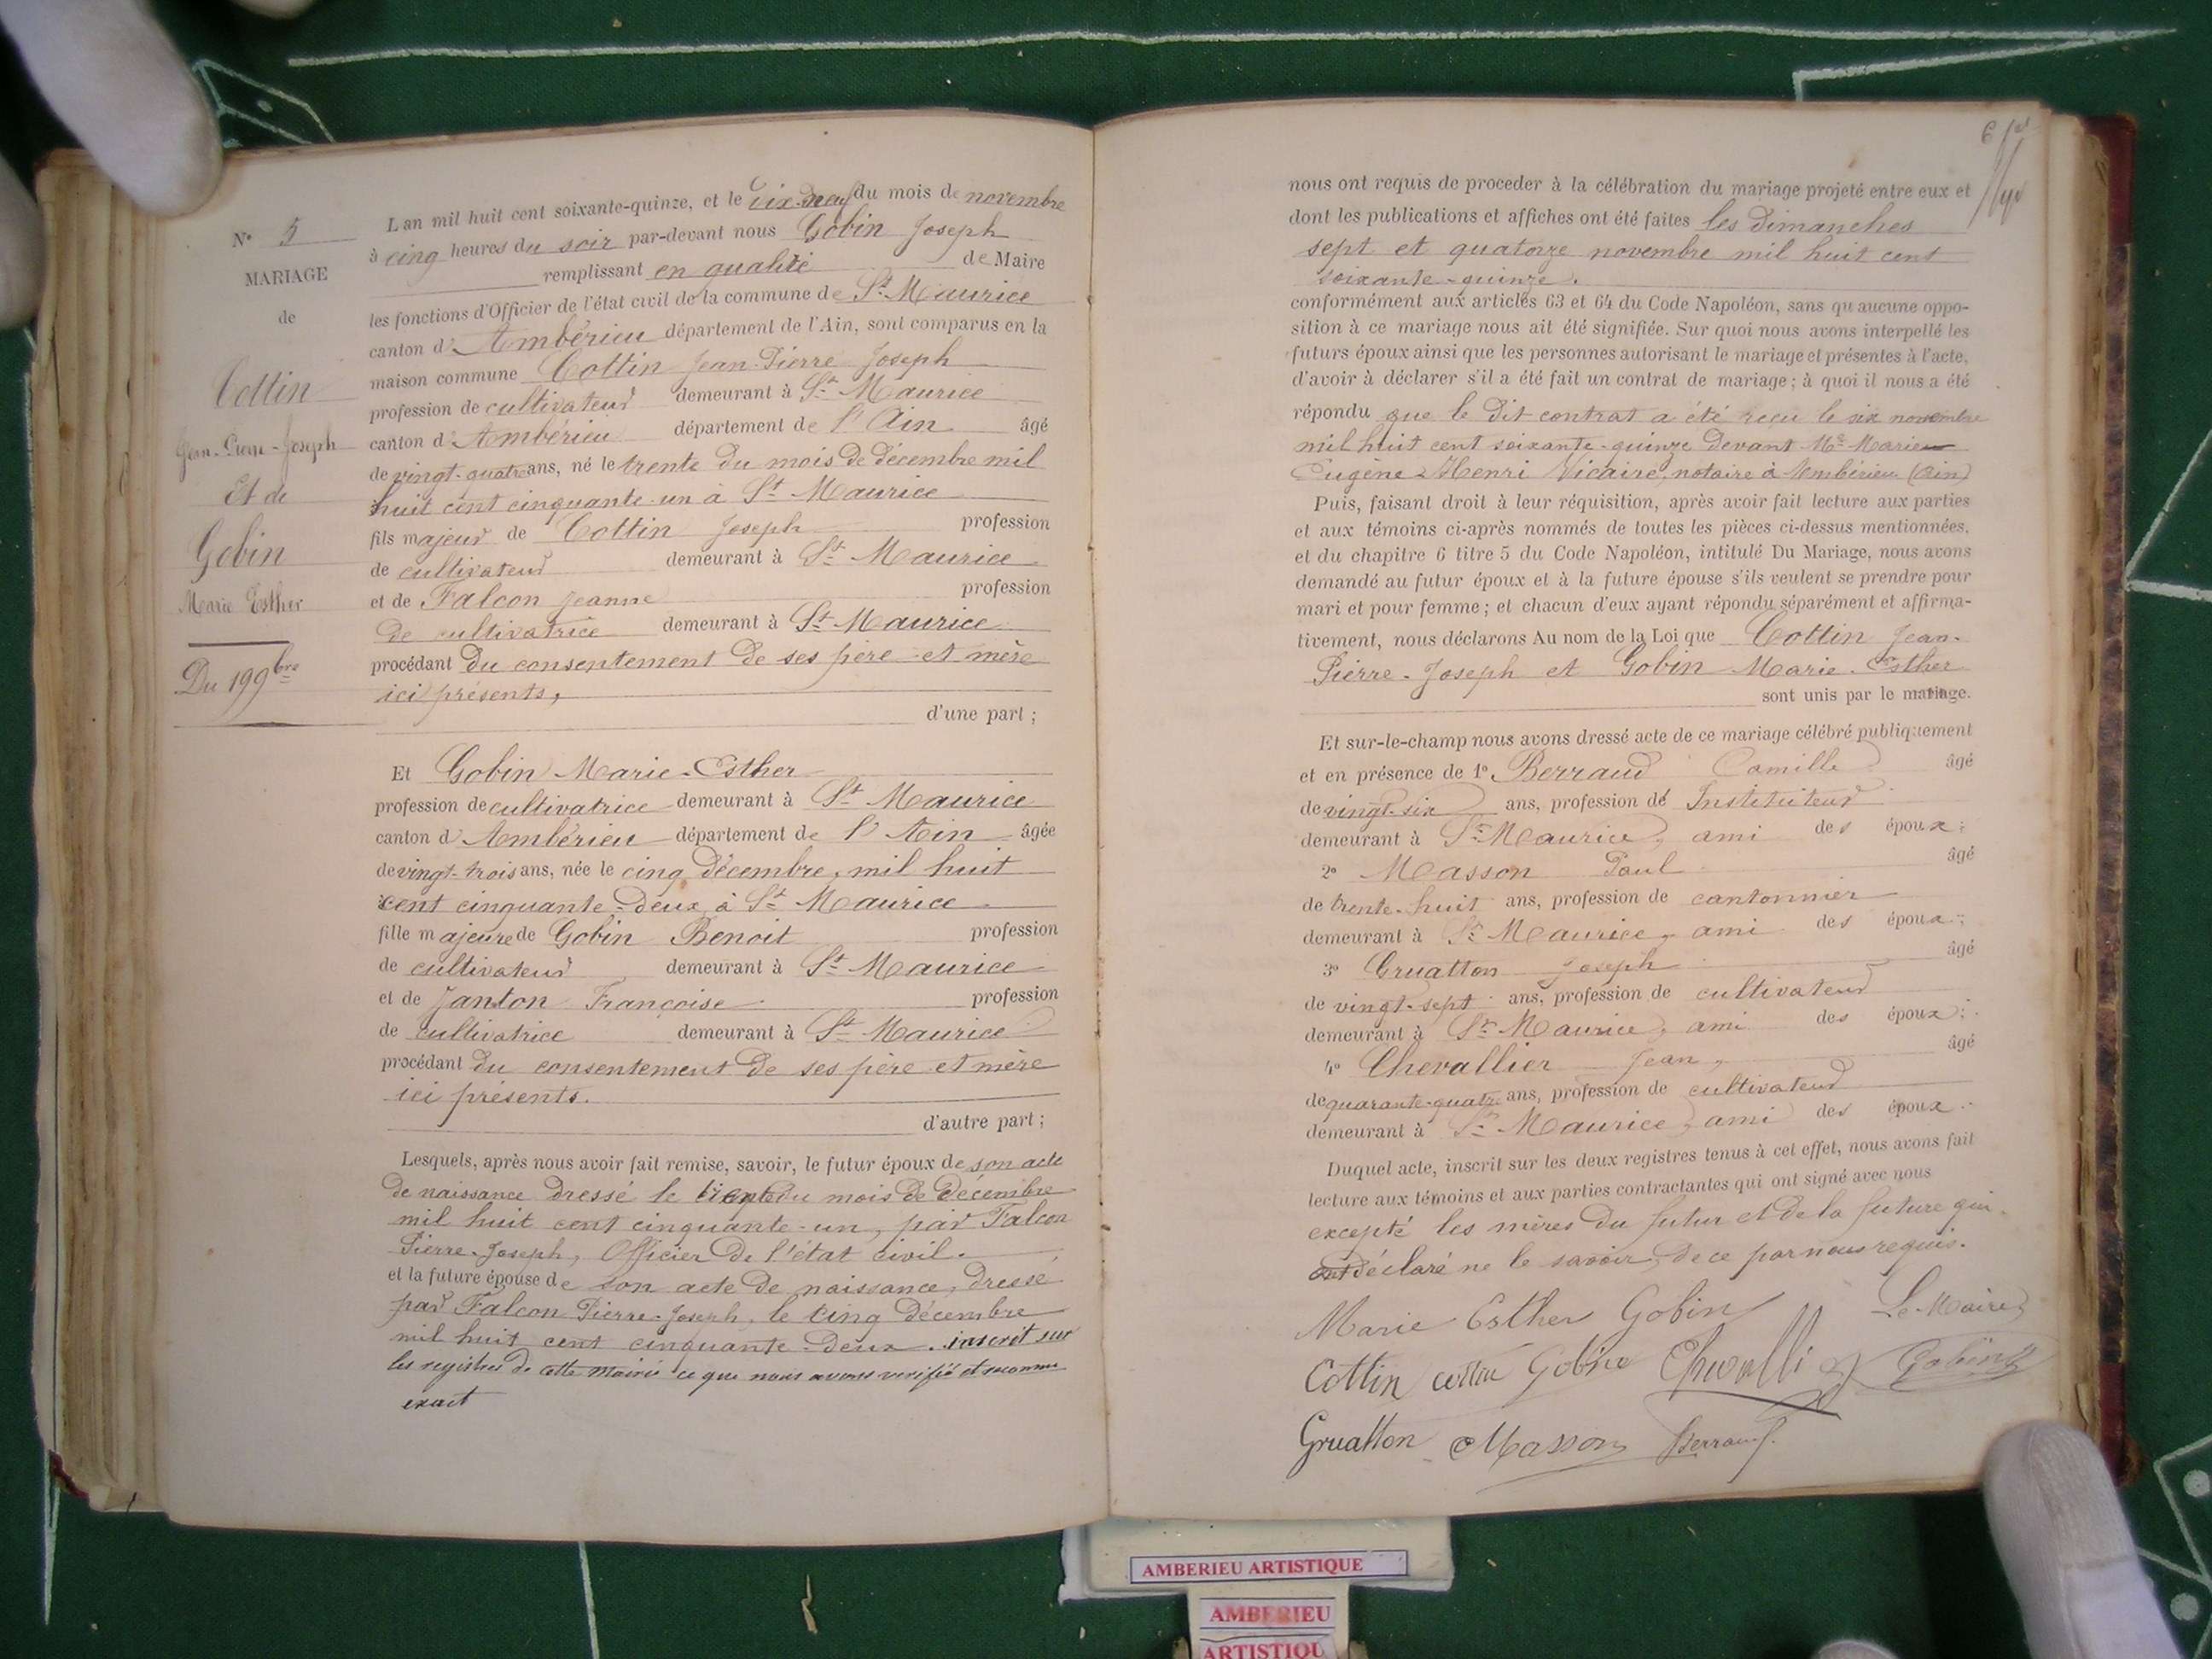 N° 5
MARIAGE
de
Cottin
Jean-Pierre-Joseph
Et de
Gobin
Marie Esther
Du 19 9bre
L'an mil huit cent soixante-quinze, et le dix-neuf du mois de novembre
à cinq heures du soir par-devant nous Gobin Joseph
remplissant en qualité de Maire
les fonctions d'Officier de l'état civil de la commune de St Maurice
canton d'Ambérieu département de l'Ain, sont comparus en la
maison commune Cottin Jean-Pierre Joseph
profession de cultivateur demeurant à St Maurice
canton d'Ambérieu département de l'Ain âgé
de vingt-quatre ans, né le trente du mois de décembre mil
huit cent cinquante-un à St Maurice
fils majeur de Cottin Joseph profession
de cultivateur demeurant à St Maurice
et de Falcon Jeanne profession
de cultivatrice demeurant à St Maurice
procédant du consentement de ses père et mère
ici présents,
d'une part ;
Et Gobin Marie-Esther
profession de cultivatrice demeurant à St Maurice
canton d'Ambérieu département de l'Ain âgée
de vingt-trois ans, née le cinq décembre, mil huit
cent cinquante-deux à St Maurice
fille majeure de Gobin Benoit profession
de cultivateur demeurant à St Maurice
et de Janton Françoise profession
de cultivatrice demeurant à St Maurice
procédant du consentement de ses père et mère
ici présents.
d'autre part ;
Lesquels, après nous avoir fait remise, savoir, le futur époux de son acte
de naissance dressé le trente du mois de décembre
mil huit cent cinquante-un, par Falcon
Pierre-Joseph, Officier de l'état civil.
et la future épouse de son acte de naissance, dressé
par Falcon Pierre-Joseph, le cinq décembre
mil huit cent cinquante-deux. inscrit sur
les registres de cette mairie ce que nous avons verifié et reconnu
exact
6
nous ont requis de proceder à la célébration du mariage projeté entre eux et
dont les publications et affiches ont été faites les dimanches
sept et quatorze novembre mil huit cent
soixante-quinze.
conformément aux articles 63 et 64 du Code Napoléon, sans qu'aucune oppo-
sition à ce mariage nous ait été signifiée. Sur quoi nous avons interpellé les
futurs époux ainsi que les personnes autorisant le mariage et présentes à l'acte,
d'avoir à déclarer s'il a été fait un contrat de mariage ; à quoi il nous a été
répondu que le dit contrat a été reçu le six novembre
mil huit cent soixante-quinze devant Me Marie
Eugène-Henri Vicaire, notaire à Ambérieu (Ain)
Puis, faisant droit à leur réquisition, après avoir fait lecture aux parties
et aux témoins ci-après nommés de toutes les pièces ci-dessus mentionnées,
et du chapitre 6 titre 5 du Code Napoléon, intitulé Du Mariage, nous avons
demandé au futur époux et à la future épouse s'ils veulent se prendre pour
mari et pour femme ; et chacun d'eux ayant répondu séparément et affirma-
tivement, nous déclarons Au nom de la Loi que Cottin Jean-
Pierre-Joseph et Gobin Marie-Esther
sont unis par le mariage.
Et sur-le-champ nous avons dressé acte de ce mariage célébré publiquement
et en présence de 1° Berraud Camille âgé
de vingt-six ans, profession de Instituteur
demeurant à St Maurice, ami des époux ;
2° Masson Paul âgé
de trente-huit ans, profession de cantonnier
demeurant à St Maurice, ami des époux ;
3° Gruatton Joseph âgé
de vingt-sept ans, profession de cultivateur
demeurant à St Maurice, ami des époux ;
4° Chevallier Jean, âgé
de quarante-quatre ans, profession de cultivateur
demeurant à St Maurice, ami des époux.
Duquel acte, inscrit sur les deux registres tenus à cet effet, nous avons fait
lecture aux témoins et aux parties contractantes qui ont signé avec nous
excepté les mères du futur et de la future qui
ont déclaré ne le savoir, de ce par nous requis.
Marie Esther Gobin Le Maire
Cottin cottin Gobin Chevallier Gobin
Gruatton Masson Berraud
AMBERIEU ARTISTIQUE
AMBERIEU
ARTISTIQU